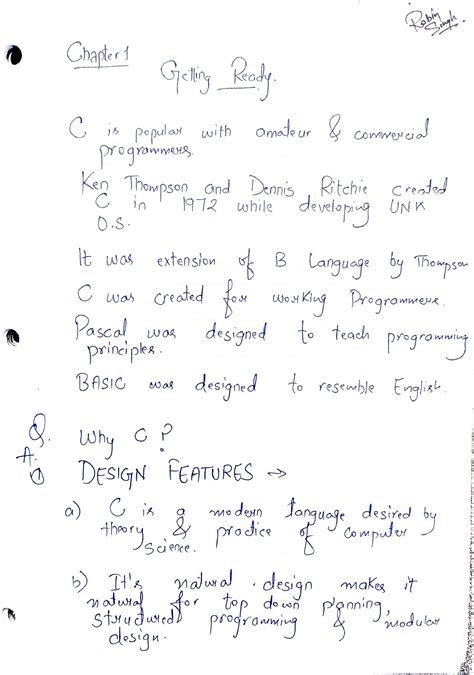 Robin
Singh
Chapter 1
Getting Ready.
C is popular with amateur & commercial
programmers.
Ken Thompson and Dennis Ritchie created
C in 1972 while developing UNIX
O.S.
It was extension of B Language by Thompson
C was created for working Programmers.
Pascal was designed to teach programming
principles.
BASIC was designed to resemble English.
Q. Why C ?
A.
① DESIGN FEATURES →
a) C is a modern language desired by
theory & practice of computer
Science.
b) It's natural design makes it
natural for top down planning,
structured programming & modular
design.